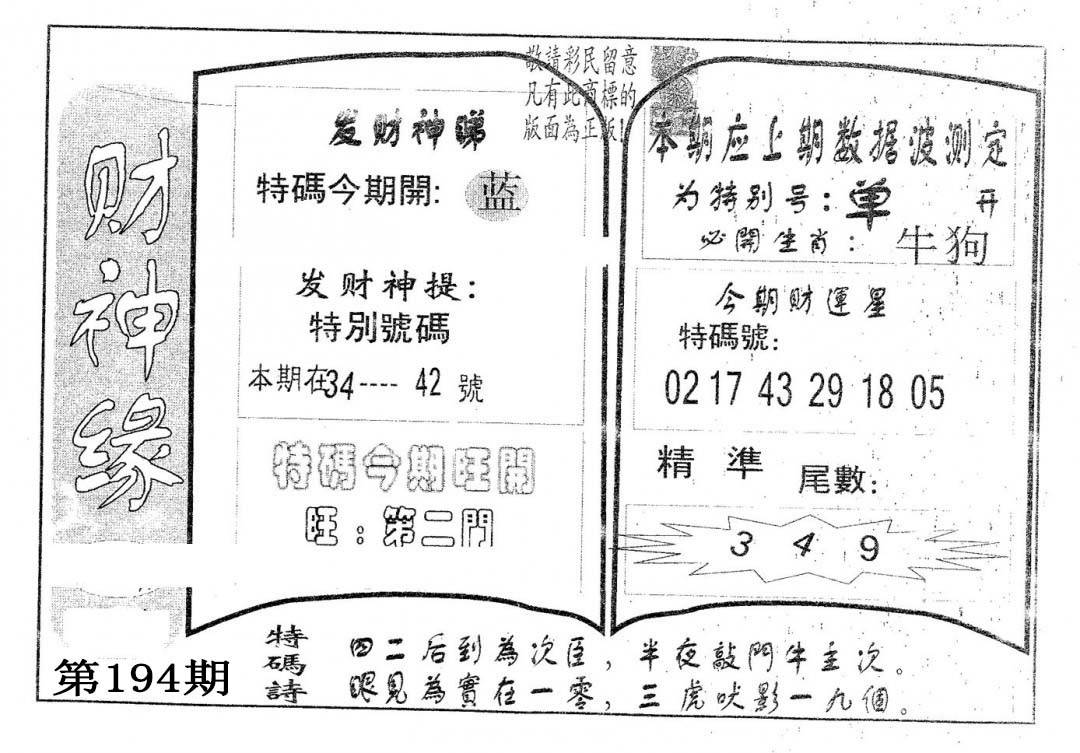 财神缘
敬請彩民留意
凡有此商標的
版面為正版!
发财神睇
特碼今期開: 蓝
发财神提:
特別號碼
本期在34----42號
特碼今期旺開
旺:第二門
本期应上期数据波测定
为特别号:单 开
必開生肖: 牛狗
今期財運星
特碼號:
02 17 43 29 18 05
精準 尾數:
3 4 9
特碼詩
四二后到為次臣,半夜敲門牛主次。
眼見為實在一零,三虎吠影一九個。
第194期